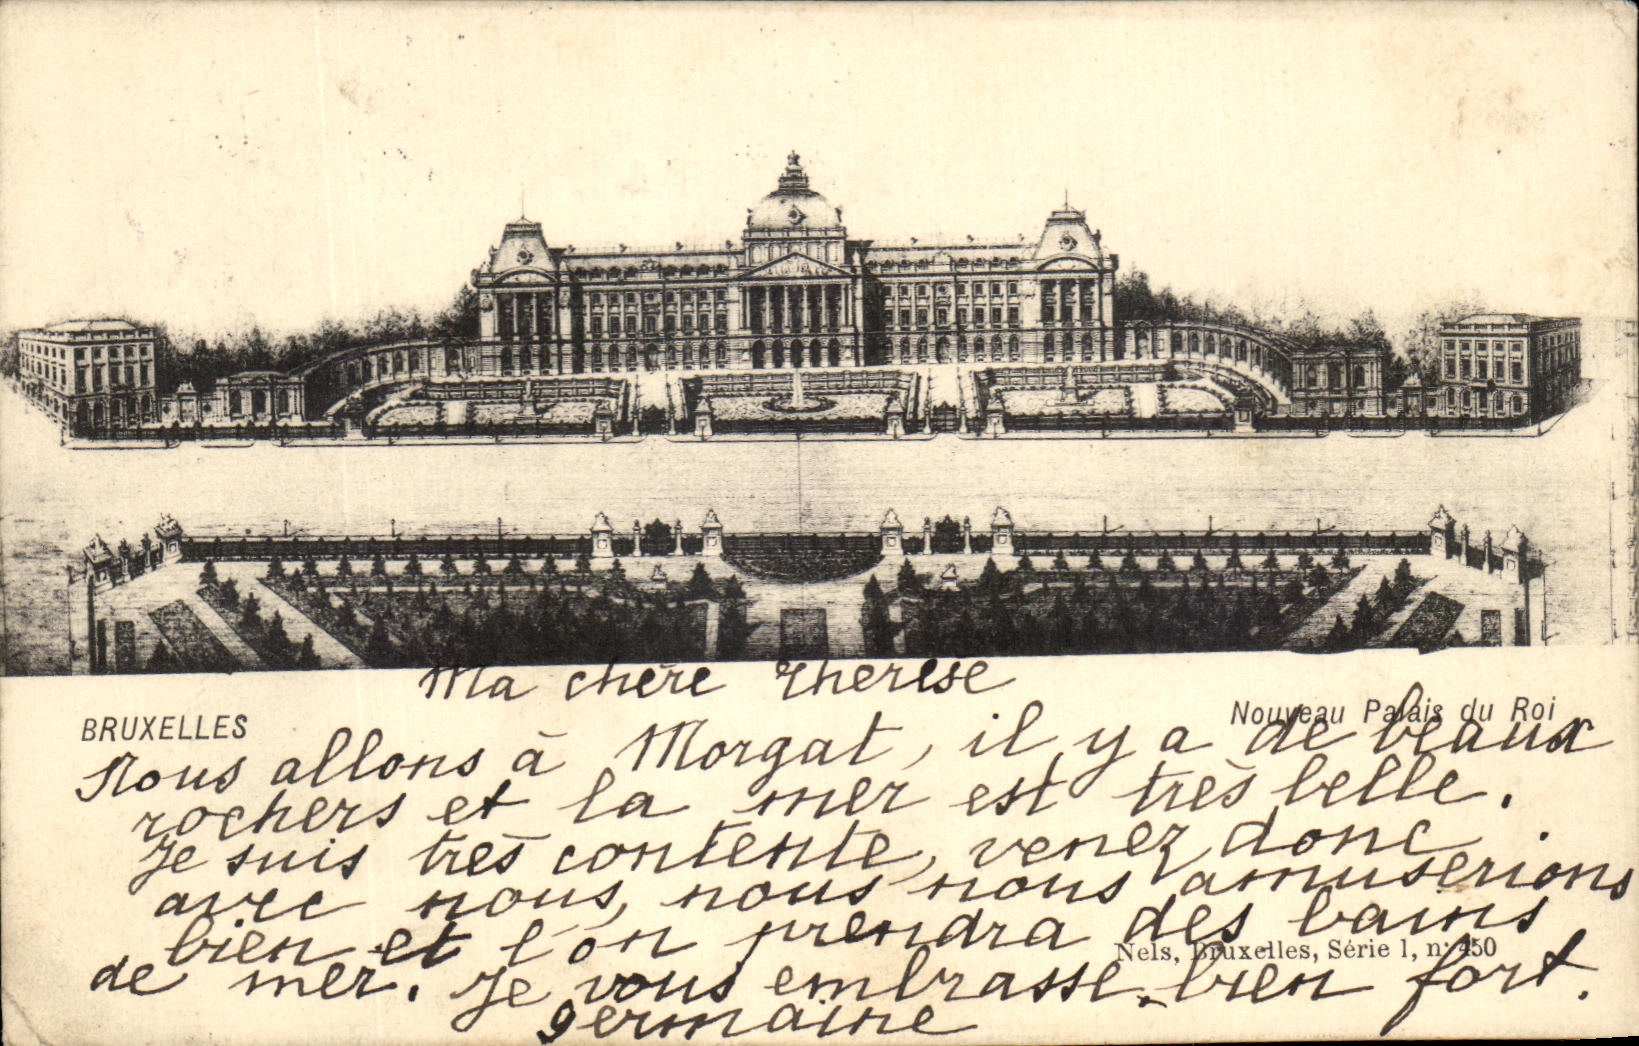 Ma chère Thérèse
BRUXELLES
Nouveau Palais du Roi
Nous allons à Morgat, il y a de beaux
rochers et la mer est très belle.
Je suis très contente, venez donc
avec nous, nous nous amuserions
bien et l'on prendra des bains
Nels, Bruxelles, Série 1, n° 450
de mer. Je vous embrasse bien fort.
germaine